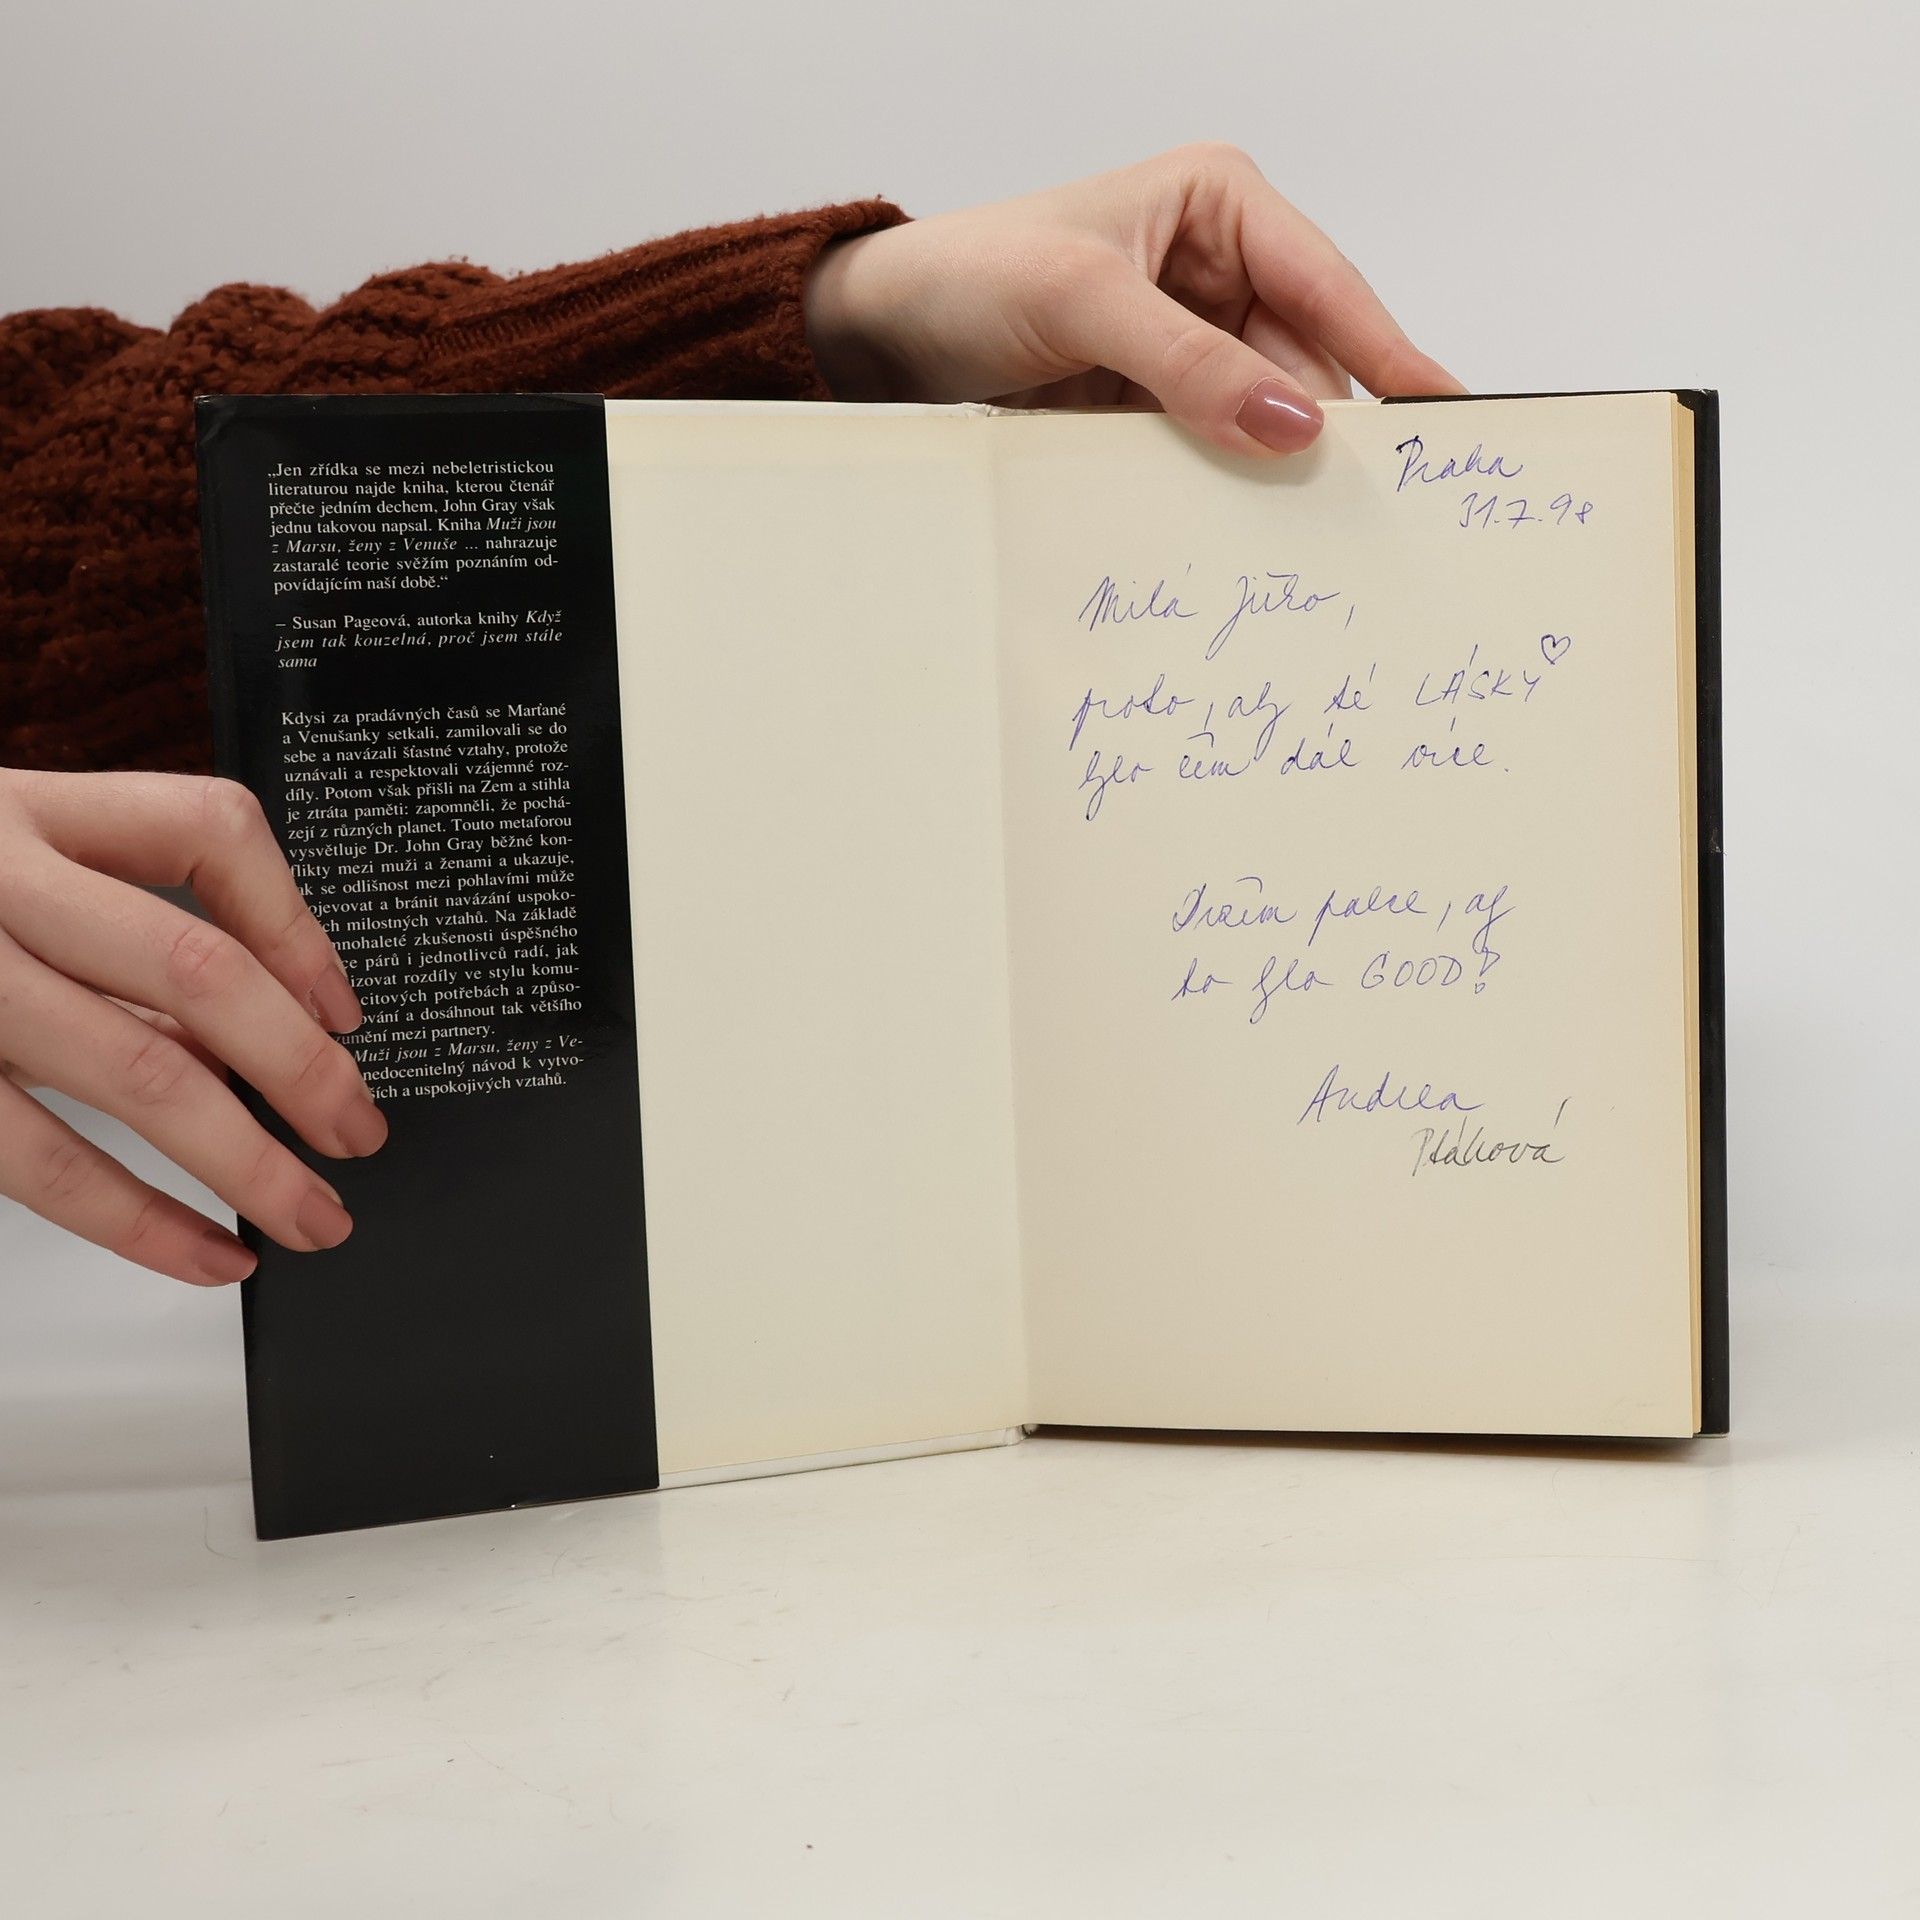 „Jen zřídka se mezi nebeletristickou
literaturou najde kniha, kterou čtenář
přečte jedním dechem, John Gray však
jednu takovou napsal. Kniha Muži jsou
z Marsu, ženy z Venuše ... nahrazuje
zastaralé teorie svěžím poznáním od-
povídajícím naší době.“
– Susan Pageová, autorka knihy Když
jsem tak kouzelná, proč jsem stále
sama
Kdysi za pradávných časů se Marťané
a Venušanky setkali, zamilovali se do
sebe a navázali šťastné vztahy, protože
uznávali a respektovali vzájemné roz-
díly. Potom však přišli na Zem a stihla
je ztráta paměti: zapomněli, že pochá-
zejí z různých planet. Touto metaforou
vysvětluje Dr. John Gray běžné kon-
flikty mezi muži a ženami a ukazuje,
se odlišnost mezi pohlavími může
a bránit navázání uspoko-
milostných vztahů. Na základě
zkušenosti úspěšného
párů i jednotlivců radí, jak
rozdíly ve stylu komu-
citových potřebách a způso-
a dosáhnout tak většího
mezi partnery.
Muži jsou z Marsu, ženy z Ve-
nedocenitelný návod k vytvo-
a uspokojivých vztahů.
Praha
31.7.98
Milá
proto, aby té LÁSKY ♡
bylo čím dál více.
Držím palce, ať
to bylo GOOD!
Andrea
Ptáková